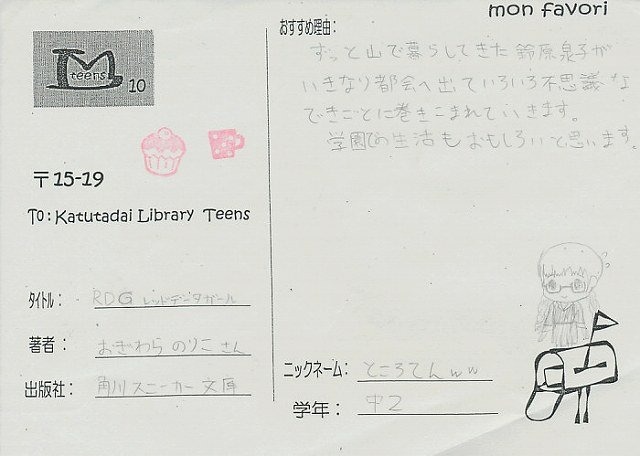 mon favori
M teens 10
〒15-19
To: Katutadai Library Teens
タイトル： RDG レッドデータガール
著者： おぎわら のりこ さん
出版社： 角川スニーカー文庫
おすすめ理由：
ずっと山で暮らしてきた鈴原泉子が
いきなり都会へ出ていろいろ不思議な
できごとに巻きこまれていきます。
学園での生活もおもしろいと思います。
ニックネーム： ところてんｗｗ
学年： 中2